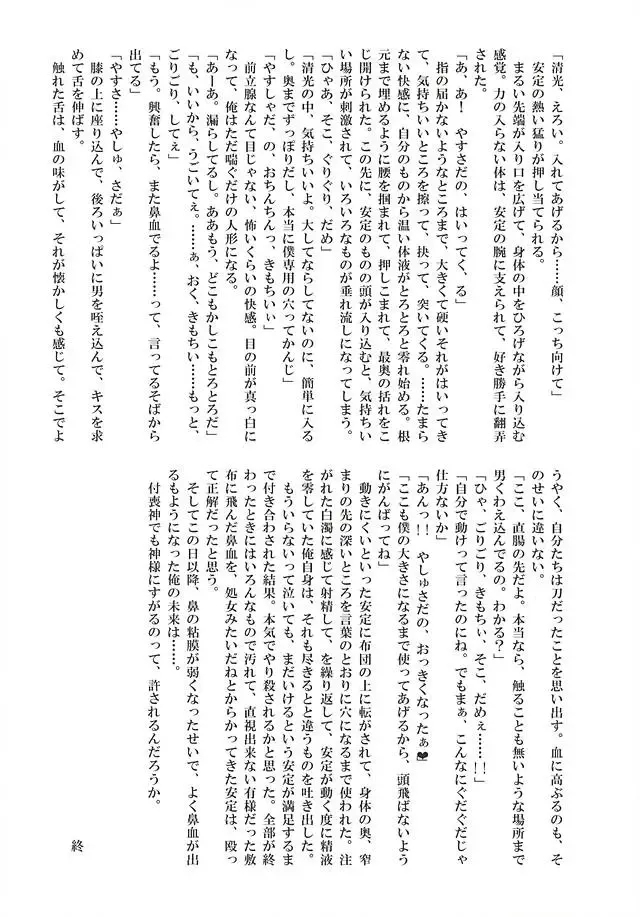 「清光、えろい。入れてあげるから……顔、こっち向けて」
安定の熱い猛りが押し当てられる。
まるい先端が入り口を広げて、身体の中をひろげながら入り込む
感覚。力の入らない体は、安定の腕に支えられて、好き勝手に翻弄
された。
「あ、あ！　やすさだの、はいってく、る」
指の届かないようなところまで、大きくて硬いそれがはいってき
て、気持ちいいところを擦って、抉って、突いてくる。……たまら
ない快感に、自分のものから温い体液がとろとろと零れ始める。根
元まで埋めるように腰を掴まれて、押しこまれて、最奥の括れをこ
じ開けられた。この先に、安定のものの頭が入り込むと、気持ちい
い場所が刺激されて、いろいろなものが垂れ流しになってしまう。
「ひゃあ、そこ、ぐりぐり、だめ」
「清光の中、気持ちいいよ。大してならしてないのに、簡単に入る
し。奥までずっぽりだし、本当に僕専用の穴ってかんじ」
「やすしゃだ、の、おちんちんっ、きもちいぃ」
前立腺なんて目じゃない、怖いくらいの快感。目の前が真っ白に
なって、俺はただ喘ぐだけの人形になる。
「あーあ。漏らしてるし。ああもう、どこもかしこもとろとろだ」
「も、いいから、うごいてぇ。……ぁ、おく、きもちい……もっと、
ごりごり、してぇ」
「もう。興奮したら、また鼻血でるよ……って、言ってるそばから
出てる」
「やすさ……やしゅ、さだぁ」
膝の上に座り込んで、後ろいっぱいに男を咥え込んで、キスを求
めて舌を伸ばす。
触れた舌は、血の味がして、それが懐かしくも感じて。そこでよ
うやく、自分たちは刀だったことを思い出す。血に高ぶるのも、そ
のせいに違いない。
「ここ、直腸の先だよ。本当なら、触ることも無いような場所まで
男くわえ込んでるの。わかる？」
「ひゃ、ごりごり、きもちぃ、そこ、だめぇ……！！」
「自分で動けって言ったのにね。でもまぁ、こんなにぐだぐだじゃ
仕方ないか」
「あんっ！！　やしゅさだの、おっきくなったぁ❤」
「ここも僕の大きさになるまで使ってあげるから、頭飛ばないよう
にがんばってね」
動きにくいといった安定に布団の上に転がされて、身体の奥、窄
まりの先の深いところを言葉のとおりに穴になるまで使われた。注
がれた白濁に感じて射精して、を繰り返して、安定が動く度に精液
を零していた俺自身は、それも尽きるとと違うものを吐き出した。
もういらないって泣いても、まだいけるという安定が満足するま
で付き合わされた結果。本気でやり殺されるかと思った。全部が終
わったときにはいろんなもので汚れて、直視出来ない有様だった敷
布に飛んだ鼻血を、処女みたいだねとからかってきた安定は、殴っ
て正解だったと思う。
そしてこの日以降、鼻の粘膜が弱くなったせいで、よく鼻血が出
るもようになった俺の未来は……。
付喪神でも神様にすがるのって、許されるんだろうか。
終